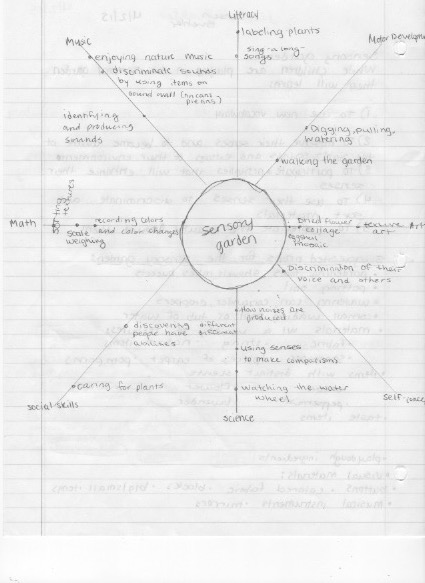 Literacy
labeling plants
sing-a-long
songs
Music
enjoying nature music
discriminate sounds
by using items on
sound wall (tin cans
pie tins)
identifying
and producing
sounds
Motor Developm
Digging, pulling,
watering
walking the garden
Math
sorting
textures
scale
weighing
recording colors
and color changes
sensory
garden
Dried flower
collage
eggshell
mosaic
texture
art
Art
Discrimination of their
voice and others
How noises are
produced
using senses
to make comparisons
watching the water
wheel
science
discovering different
people have different
abilities
caring for plants
social skills
Self-conc